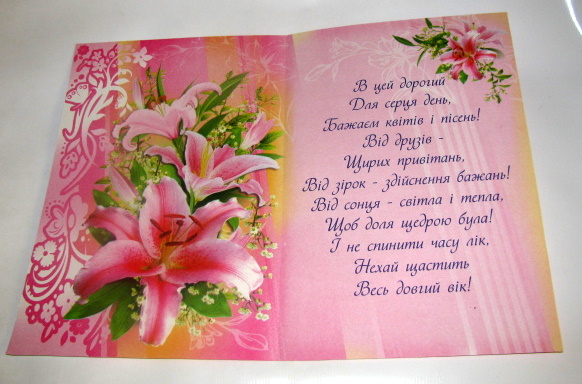 В цей дорогий
Для серця день,
Бажаєм квітів і пісень!
Від друзів -
Щирих привітань,
Від зірок - здійснення бажань!
Від сонця - світла і тепла,
Щоб доля щедрою була!
І не спинити часу лік,
Нехай щастить
Весь довгий вік!